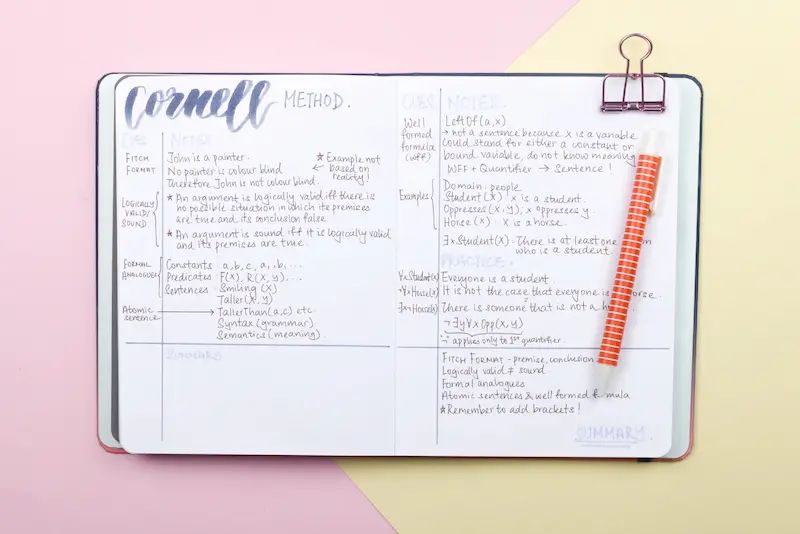 Cornell METHOD.
CUES
NOTES
FITCH
FORMAT
John is a painter.
No painter is colour blind
Therefore John is not colour blind.
★ Example not
← based on
reality!
LOGICALLY
VALID/
SOUND.
★ An argument is logically valid iff there is
no possible situation in which its premises
are true and its conclusion false
★ An argument is sound iff it is logically valid
and its premises are true.
FORMAL
ANALOGUES
Constants : a, b, c, a, b, ...
Predicates : F(x), R(x, y) ....
Sentences : Smiling (x)
Taller(x, y)
Atomic
sentence
→ TallerThan(a,c) etc.
Syntax (grammar)
Semantics (meaning).
SUMMARY
CUES
NOTES
Well
formed
formula
(wff)
LeftOf(a,x)
→ not a sentence because x is a variable
could stand for either a constant or
bound variable, do not know meaning
WFF + Quantifier → Sentence!
Examples
Domain: people
Student(x) : x is a student.
Oppresses (x, y): x oppresses y.
Horse (x) : x is a horse.
∃x Student(x) : There is at least one
who is a student.
PRACTICE.
∀x Student(x)
Everyone is a student
¬∀x House(x)
It is not the case that everyone is
∃x¬House(x)
There is someone that is not a
¬∃y∀x Opp(x, y)
'¬' applies only to 1st quantifier.
FITCH FORMAT - premise, conclusion
Logically valid ≠ sound.
Formal analogues
Atomic sentences & well formed
★ Remember to add brackets!
SUMMARY.